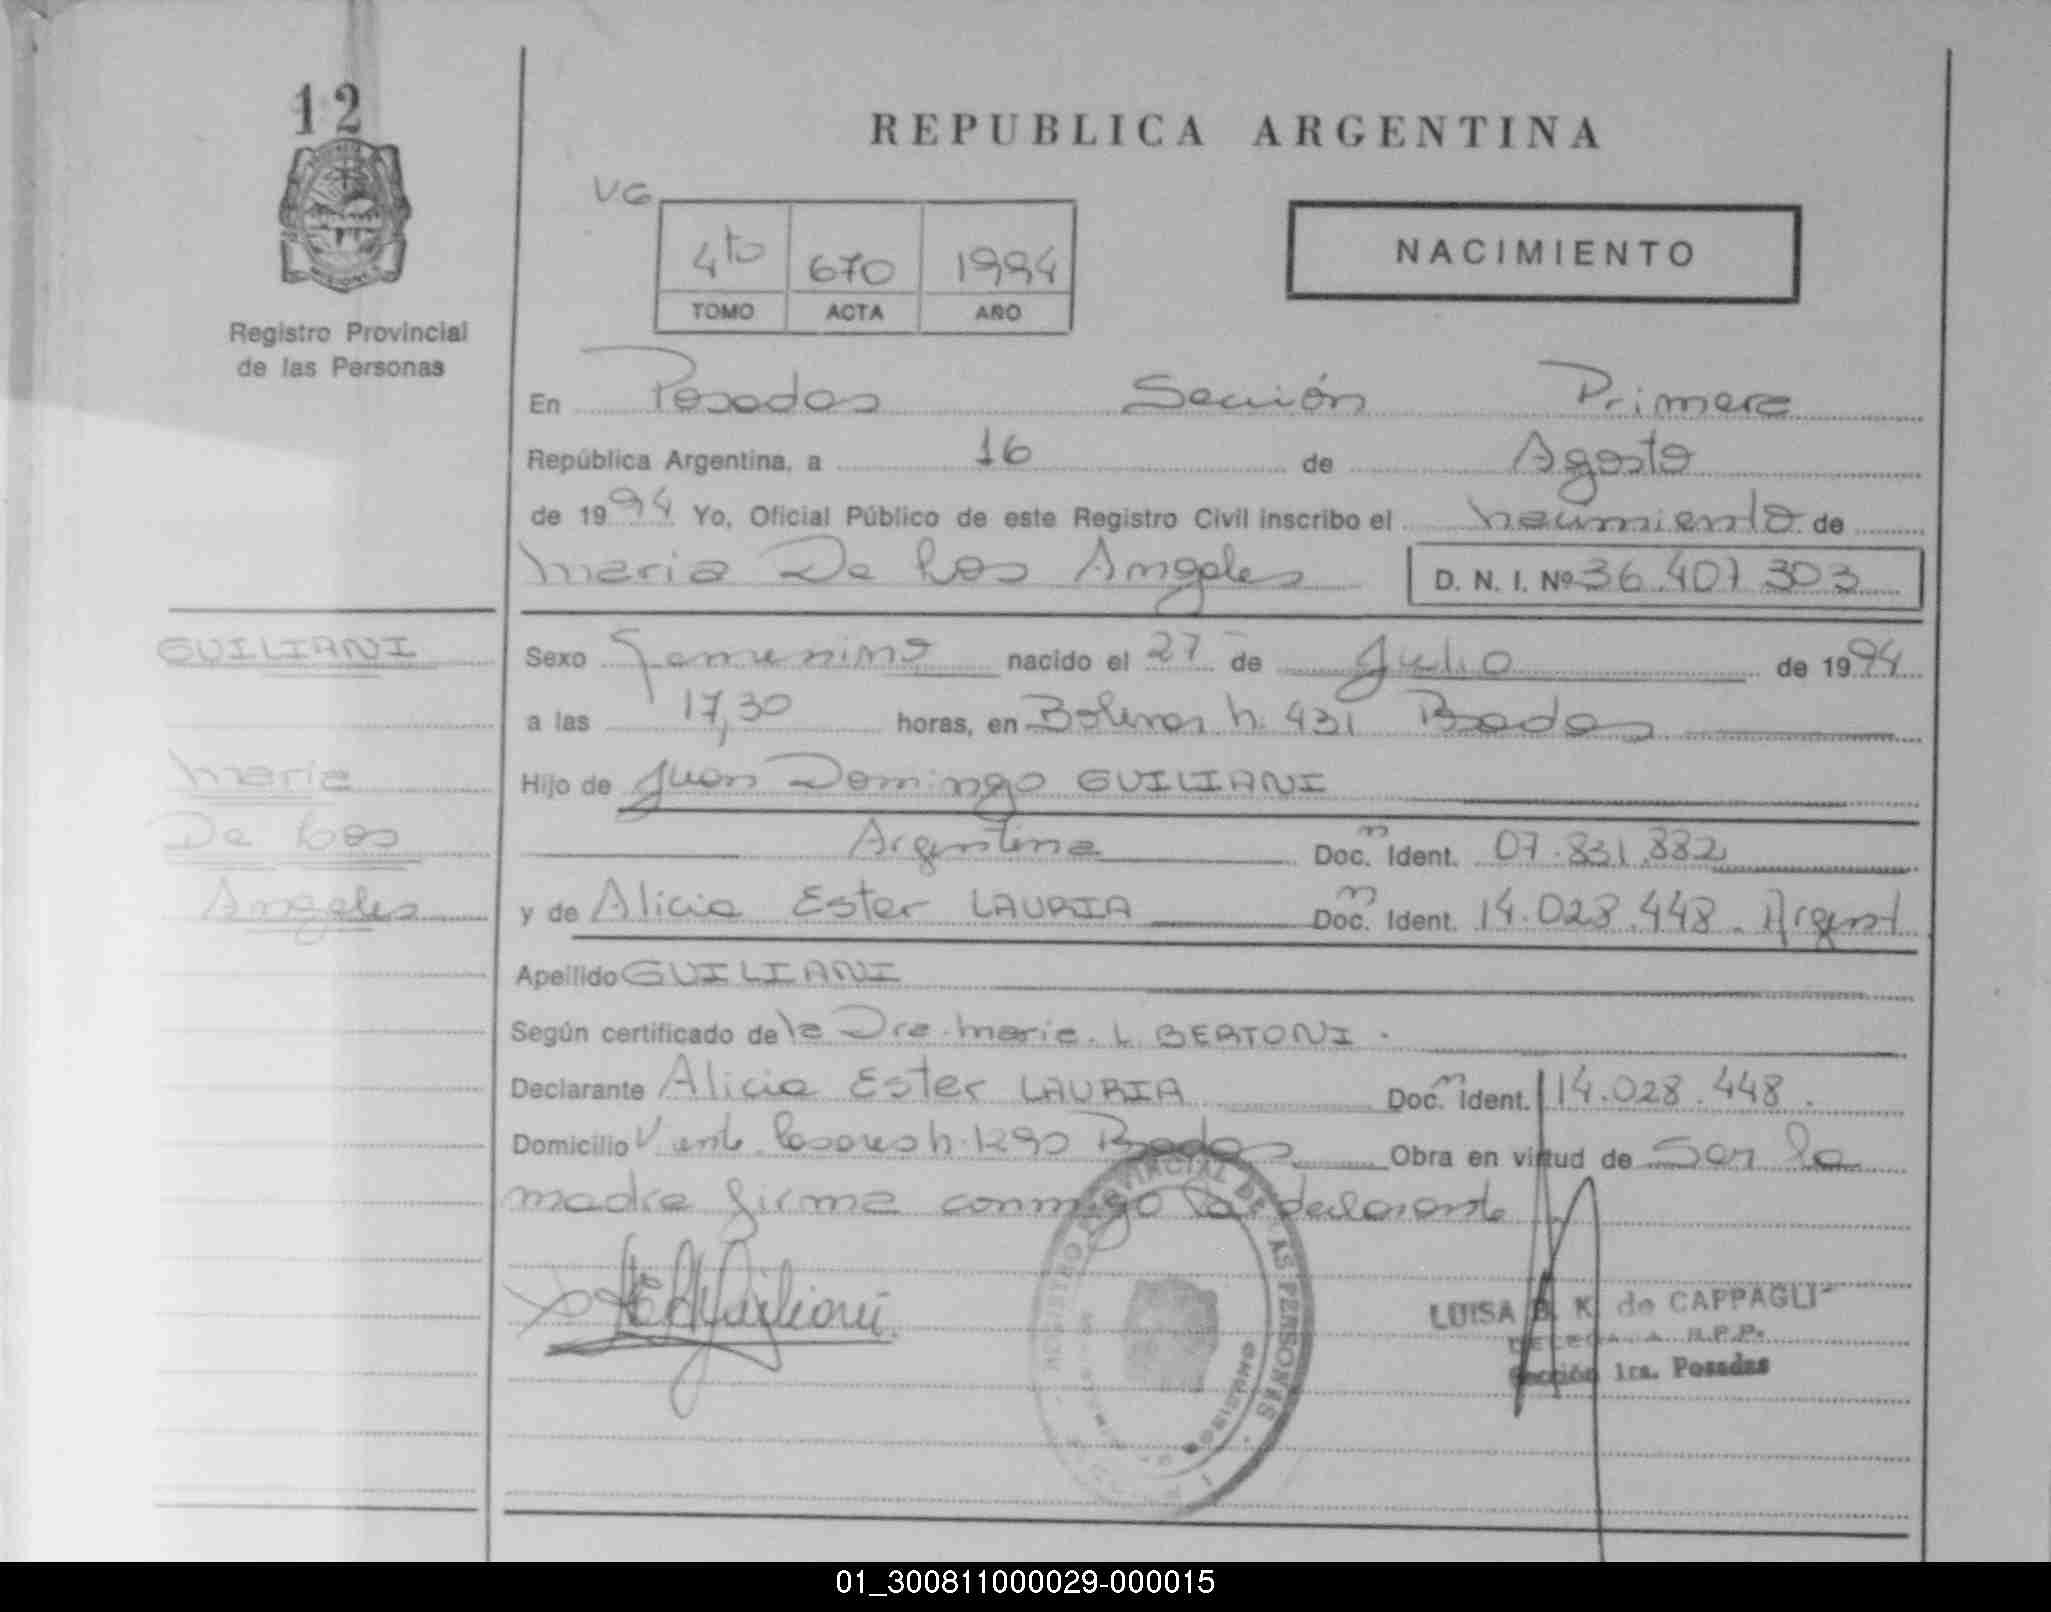 12
REPUBLICA ARGENTINA
VG
4to 670 1994
TOMO ACTA AÑO
NACIMIENTO
Registro Provincial
de las Personas
En Posadas Sección Primera
República Argentina, a 16 de Agosto
de 1994 Yo, Oficial Público de este Registro Civil inscribo el nacimiento de
Maria De Los Angeles D. N. I. Nº 36.407.303
GUILIANI
Sexo Femenino nacido el 27 de Julio de 1994
a las 17,30 horas, en Bolivar n. 431 Posadas
Maria
De Los
Angeles
Hijo de Juan Domingo GUILIANI
Argentina Doc. m Ident. 07.831.882
y de Alicia Ester LAURIA Doc. m Ident. 14.028.448. Argent
Apellido GUILIANI
Según certificado de la Dra. Maria. L. BERTONI.
Declarante Alicia Ester LAURIA Doc. m Ident. 14.028.448.
Domicilio n. 1290 Posadas Obra en virtud de Ser la
madre firma conmigo la declarante
REGISTRO PROVINCIAL DE LAS PERSONAS
LUISA B. K. de CAPPAGLI
DELEGADA R.P.P.
Sección 1ra. Posadas
01_300811000029-000015